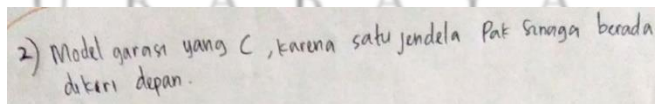 2) Model garasi yang C, karena satu jendela Pak Sinaga berada
dikiri depan.